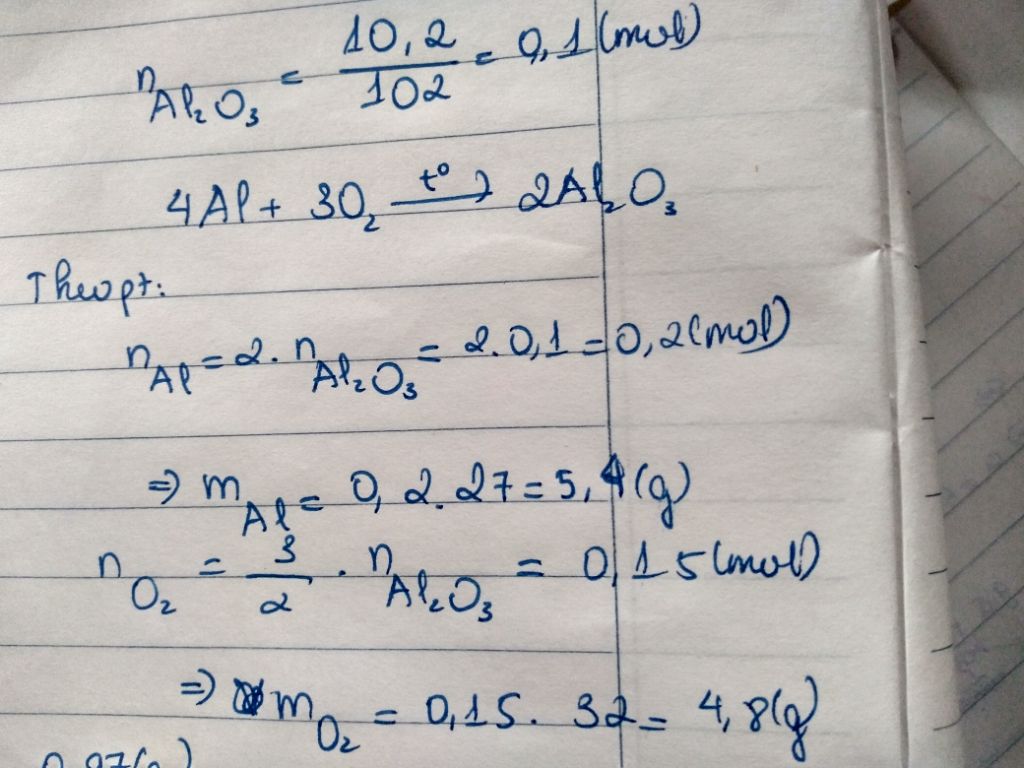 n Al₂O₃ = 10,2 / 102 = 0,1 (mol)
4Al + 3O₂ t° → 2Al₂O₃
Theo pt:
n Al = 2. n Al₂O₃ = 2. 0,1 = 0,2 (mol)
=> m Al = 0,2. 27 = 5,4 (g)
n O₂ = 3/2 . n Al₂O₃ = 0,15 (mol)
=> m O₂ = 0,15. 32 = 4,8 (g)